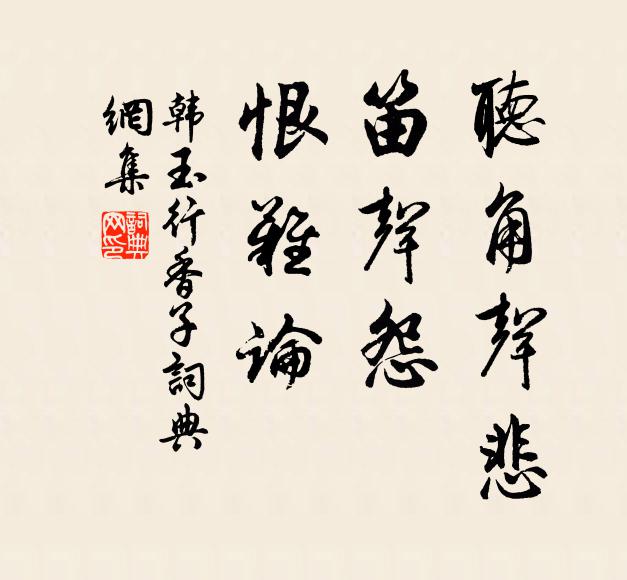 聽角聲悲
笛聲怨
恨難論
韩玉行香子詞典
網集
詞典
网印